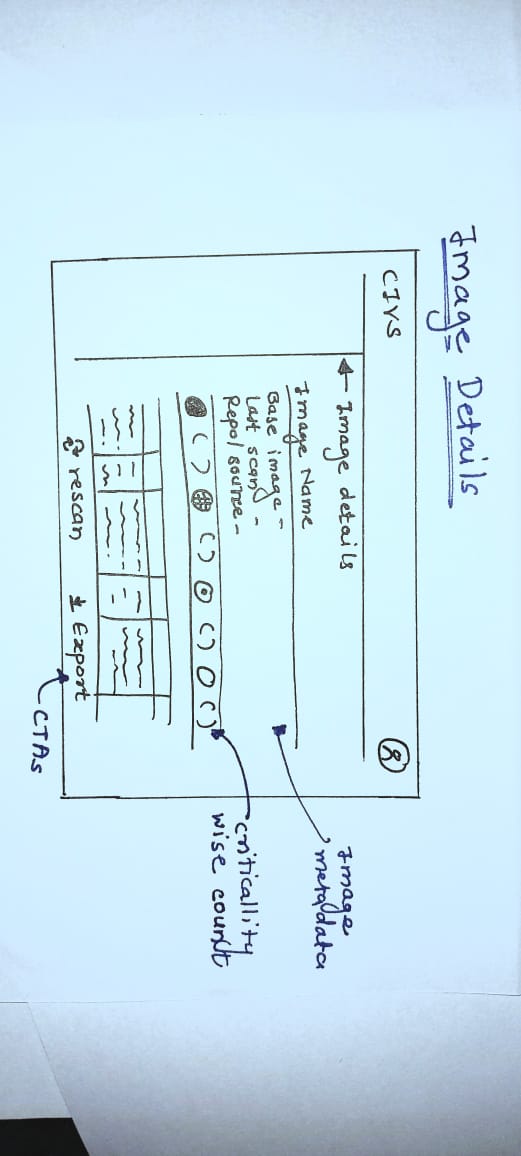 Image Details
CIVS
← Image details
Image Name
Base image -
Last scan -
Repo/source -
( ) ( ) ( ) ( )
rescan
Export
Image
metadata
criticallity
wise count
CTAs